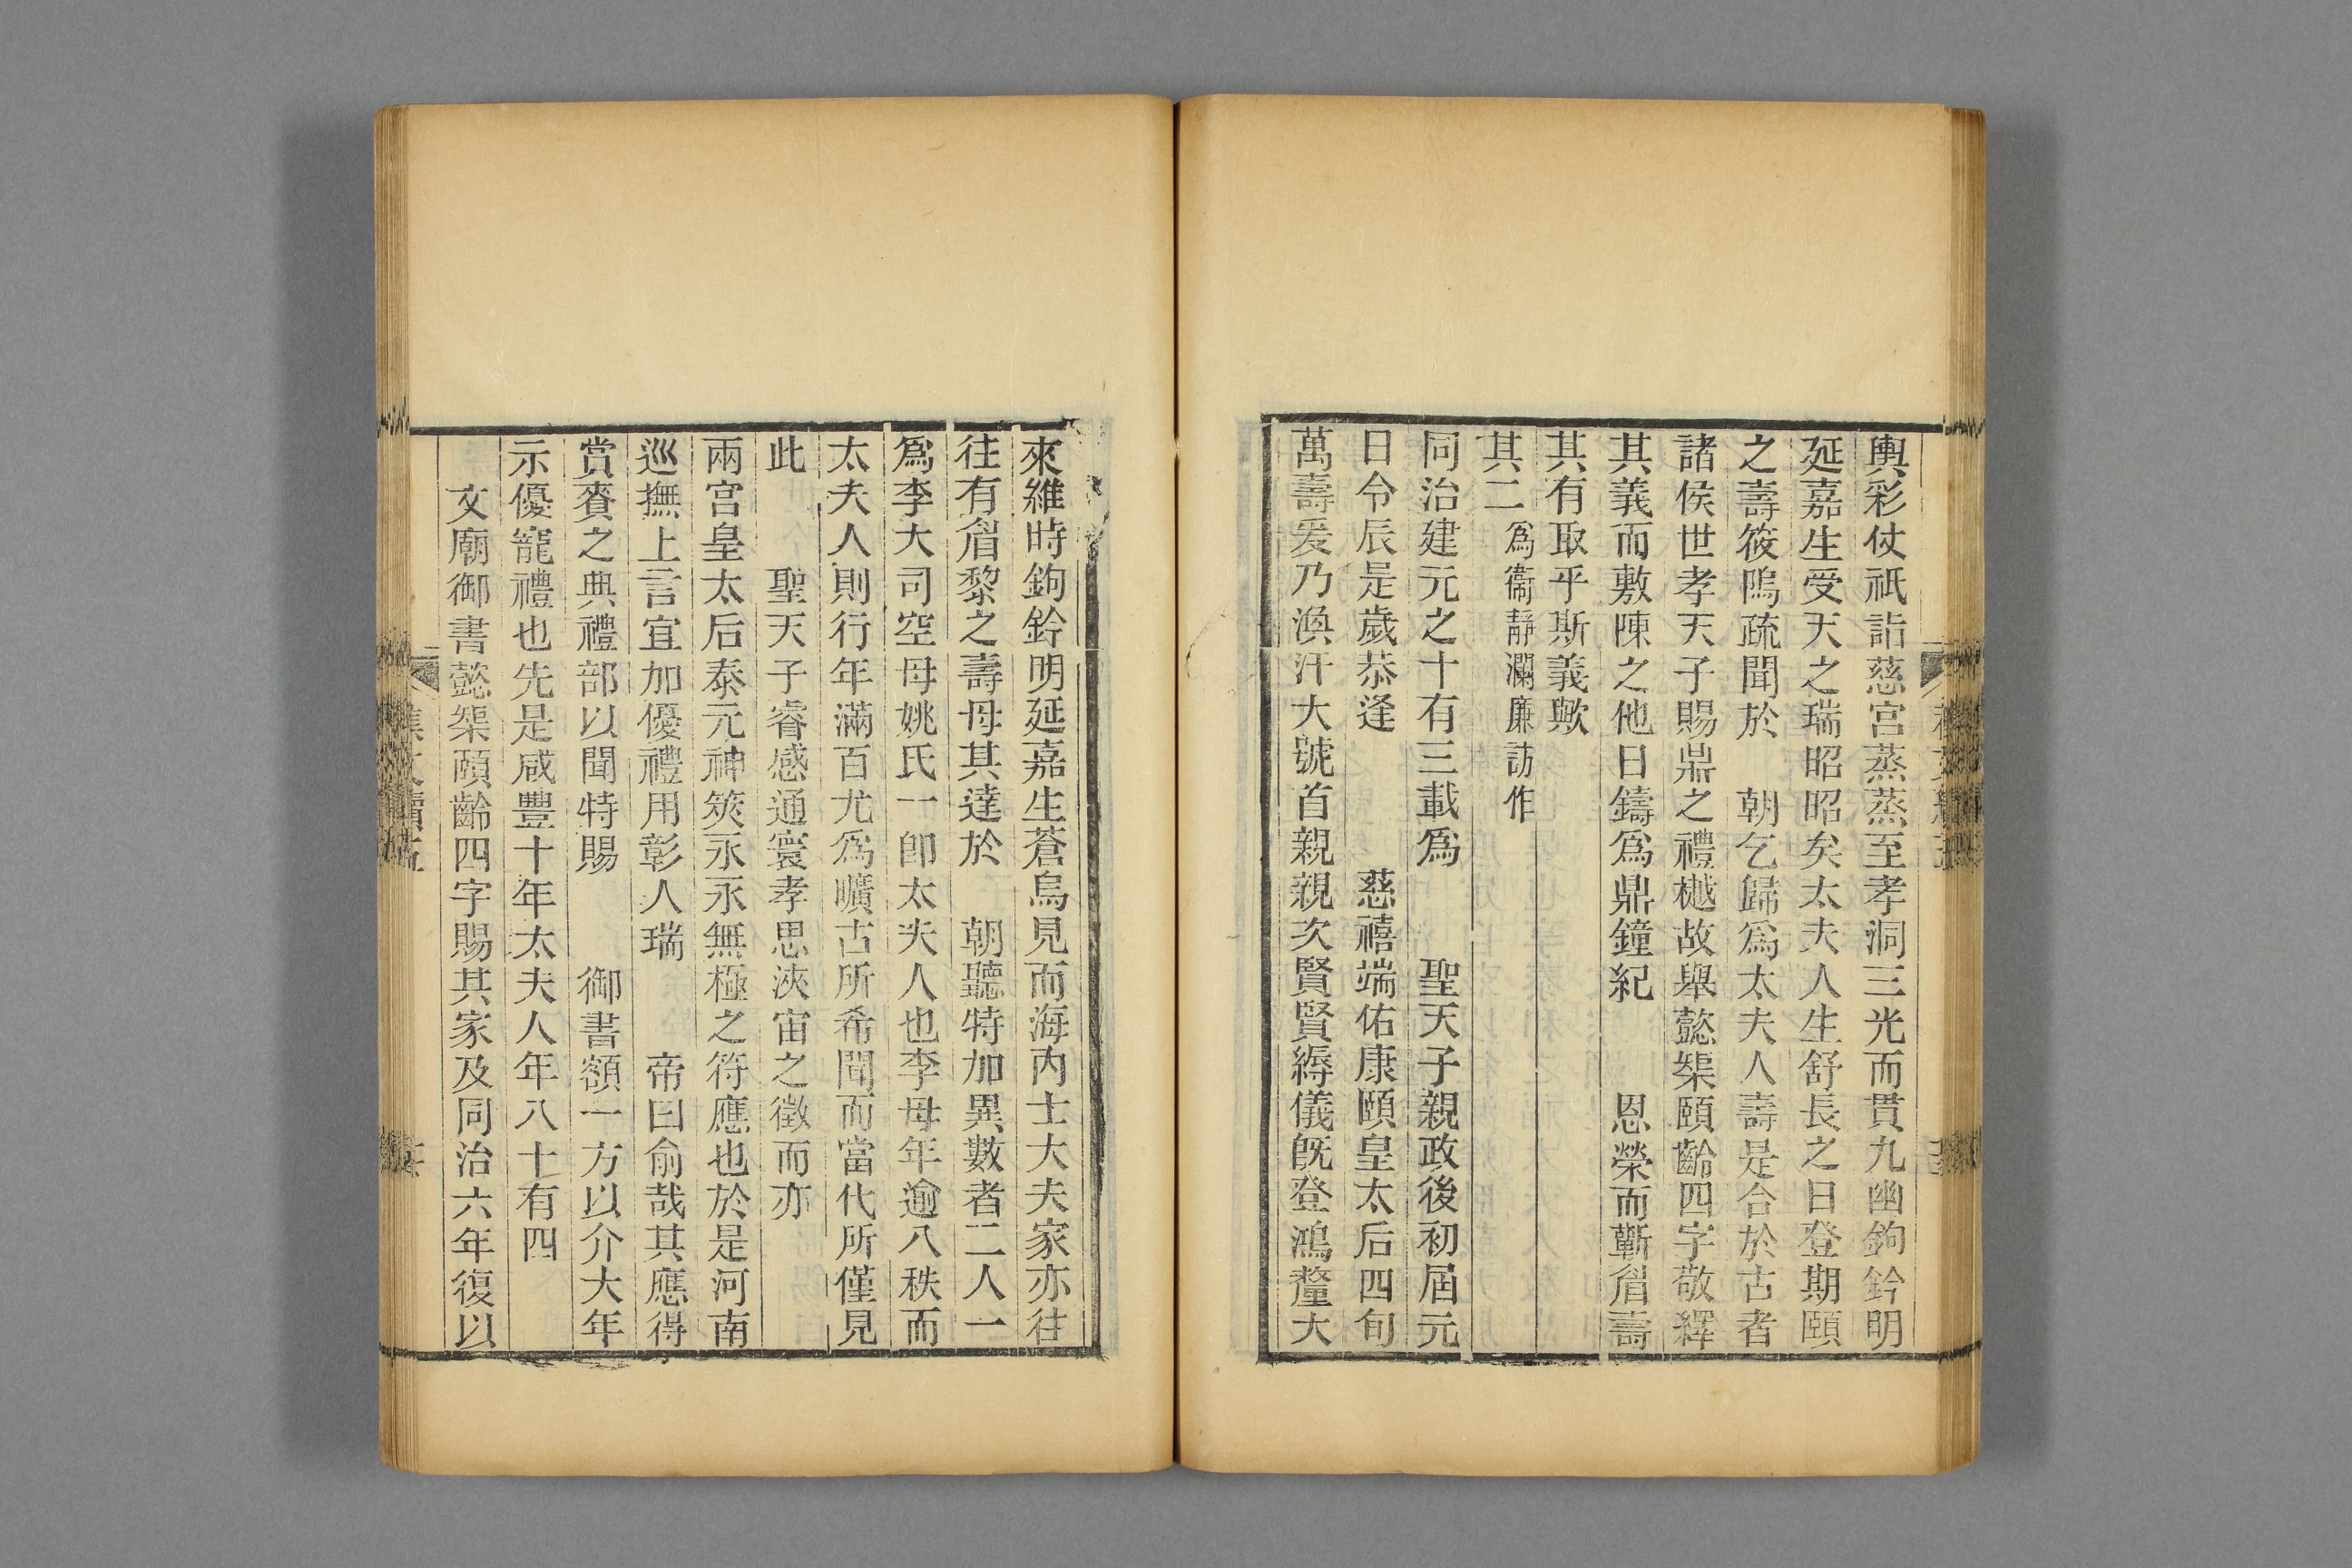 輿彩仗祇詣慈宮蒸蒸至孝洞三光而貫九幽鉤鈐明
延嘉生受天之瑞昭昭矣太夫人生舒長之日登期頤
之壽筱隝疏聞於　朝乞歸爲太夫人壽是合於古者
諸侯世孝天子賜鼎之禮樾故舉懿榘頤齡四字敬釋
其義而敷陳之他日鑄爲鼎鐘紀　　恩榮而蘄眉壽
其有取乎斯義歟
其二爲衞靜瀾廉訪作
同治建元之十有三載爲　　聖天子親政後初屆元
日令辰是歲恭逢　　　慈禧端佑康頤皇太后四旬
萬壽爰乃渙汗大號首親親次賢賢縟儀旣登鴻釐大
來維時鉤鈐明延嘉生蒼烏見而海內士大夫家亦往
往有眉黎之壽母其達於　朝聽特加異數者二人一
爲李大司空母姚氏一卽太夫人也李母年逾八秩而
太夫人則行年滿百尤爲曠古所希聞而當代所僅見
此　　聖天子睿感通寰孝思浹宙之徵而亦
兩宮皇太后泰元神筴永永無極之符應也於是河南
巡撫上言宜加優禮用彰人瑞　　帝曰俞哉其應得
賞賚之典禮部以聞特賜　　御書額一方以介大年
示優寵禮也先是咸豐十年太夫人年八十有四
文廟御書懿榘頤齡四字賜其家及同治六年復以